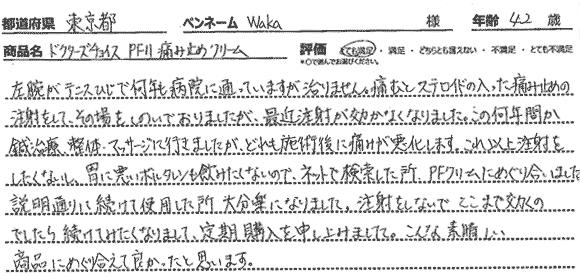 都道府県 東京都 ペンネーム Waka 様 年齢 42 歳
商品名 ドクターズチョイス PFⅡ 痛み止めクリーム 評価 とても満足 ・ 満足 ・ どちらとも言えない ・ 不満足 ・ とても不満足
*○で囲んでお選びください。
左腕がテニスひじで何年も病院に通っていますが治りません。痛むとステロイドの入った痛み止めの
注射をして、その場をしのいでおりましたが、最近注射が効かなくなりました。この何年間か
鍼治療、整体・マッサージに行きましたが、どれも施術後に痛みが悪化します。これ以上注射を
したくないし、胃に悪いボルタレンも飲みたくないので、ネットで検索した所、PFクリームにめぐり合いました
説明通りに続けて使用した所 大分楽になりました。注射をしないで ここまで効くの
でしたら 続けてみたくなりまして、定期購入を申し込みました。こんな素晴しい
商品にめぐり合えて良かったと思います。